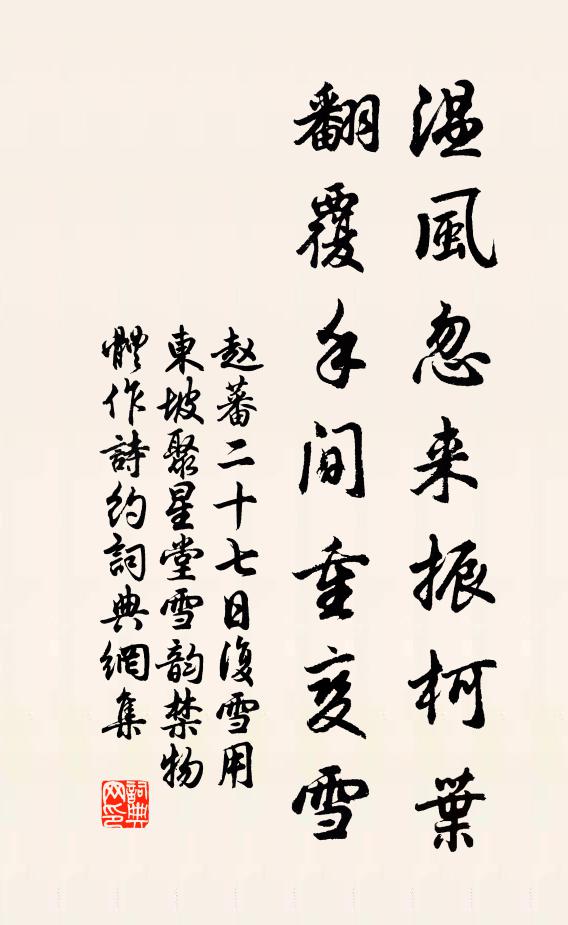 温風忽来振柯葉
翻覆手间重变雪
赵蕃二十七日復雪用
東坡聚星堂雪韵禁物
體作詩约詞典網集
詞典网印